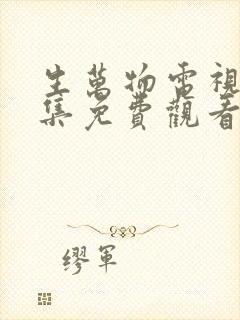 生萬物電視
集免費觀看
繆軍